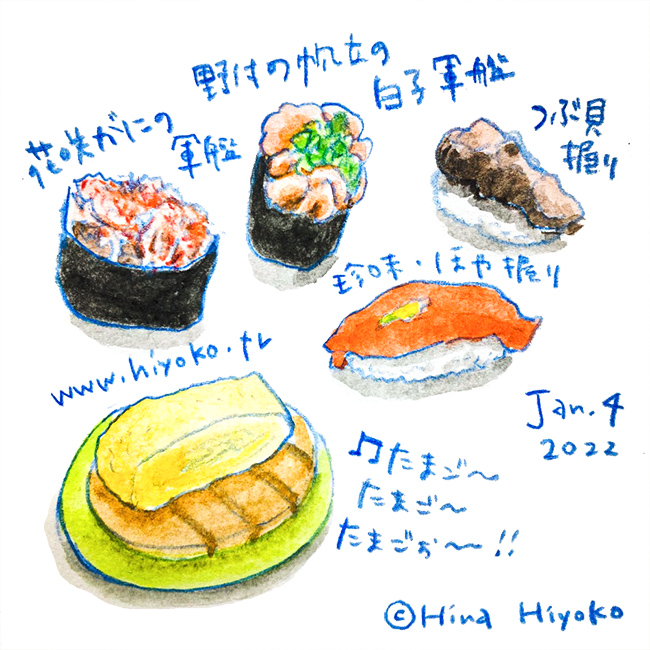 野付の帆立の
白子軍艦
花咲がにの
軍艦
つぶ貝
握り
珍味・ほや握り
www.hiyoko.tv
Jan. 4
2022
♫たまご〜
たまご〜
たまごぉ〜〜!!
©Hina Hiyoko